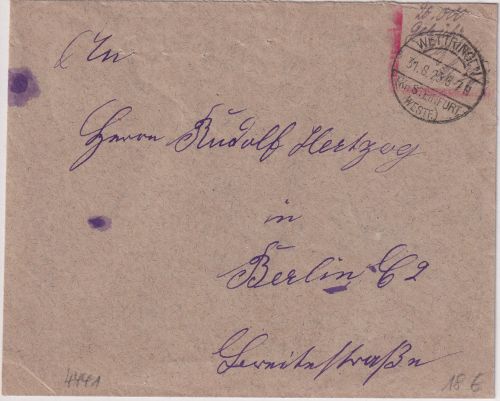 20.000
WETTRINGEN
31.8.23. 6-7 N
(Kr. STEINFURT
WESTF.)
An
Herrn Rudolf Hertzog
in
Berlin C 2
Breitestraße
4441
18 €